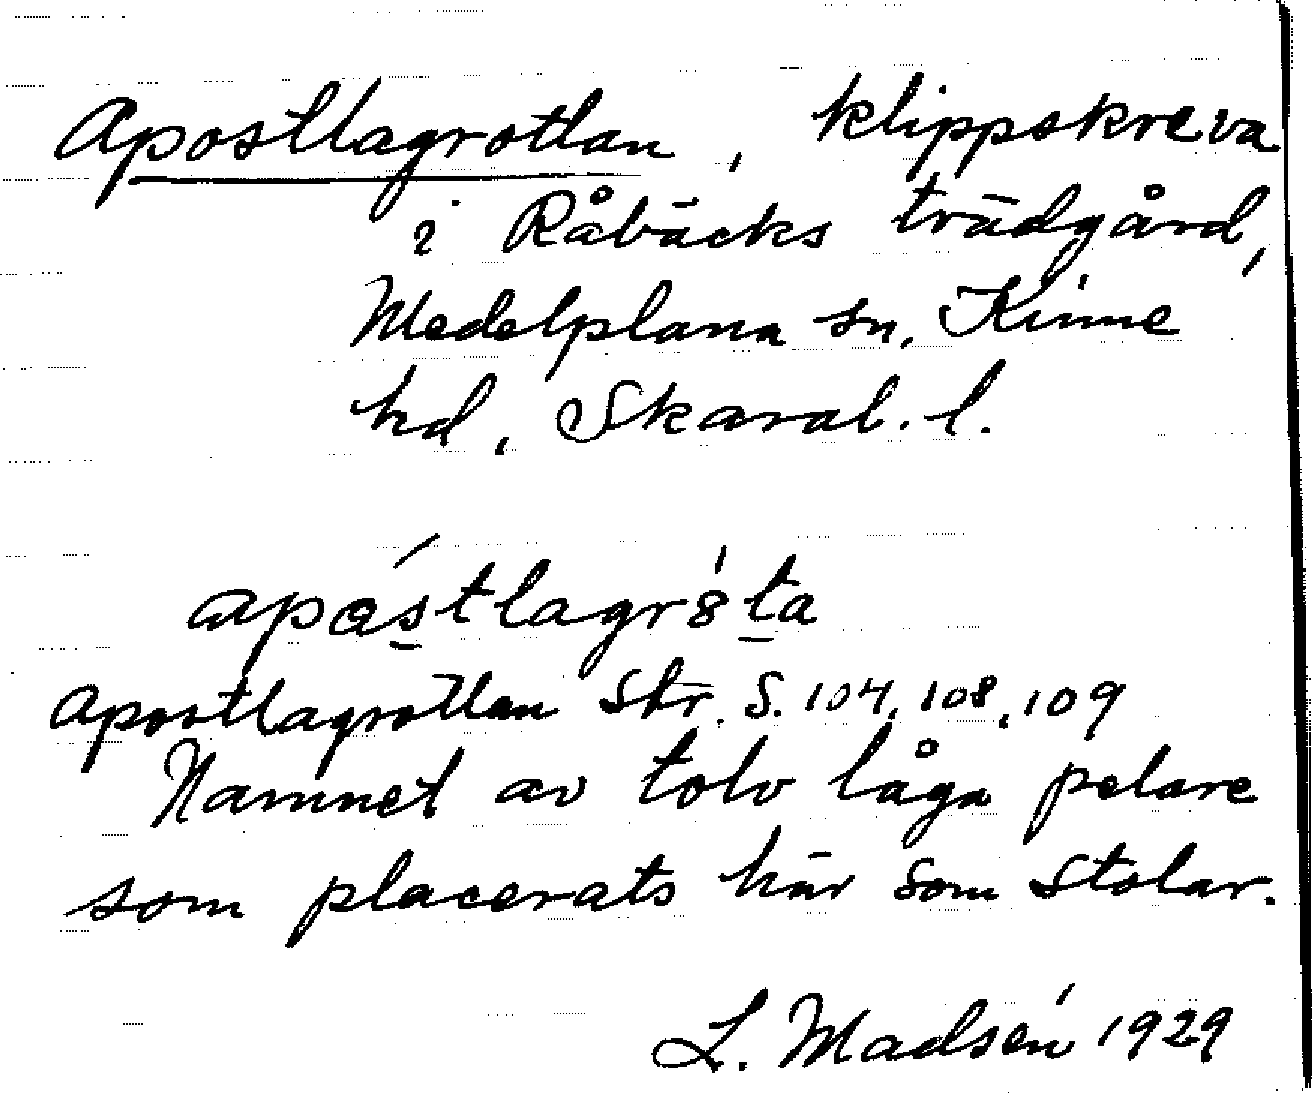 Apostlagrottan, klippskreva
i Råbäcks trädgård,
Medelplana sn, Kinne
hd, Skarab. l.
apåstlagr8ta
Apostlagrottan Skr. S. 104, 108, 109
Namnet av tolv låga pelare
som placerats här som stolar.
L. Madsén 1929